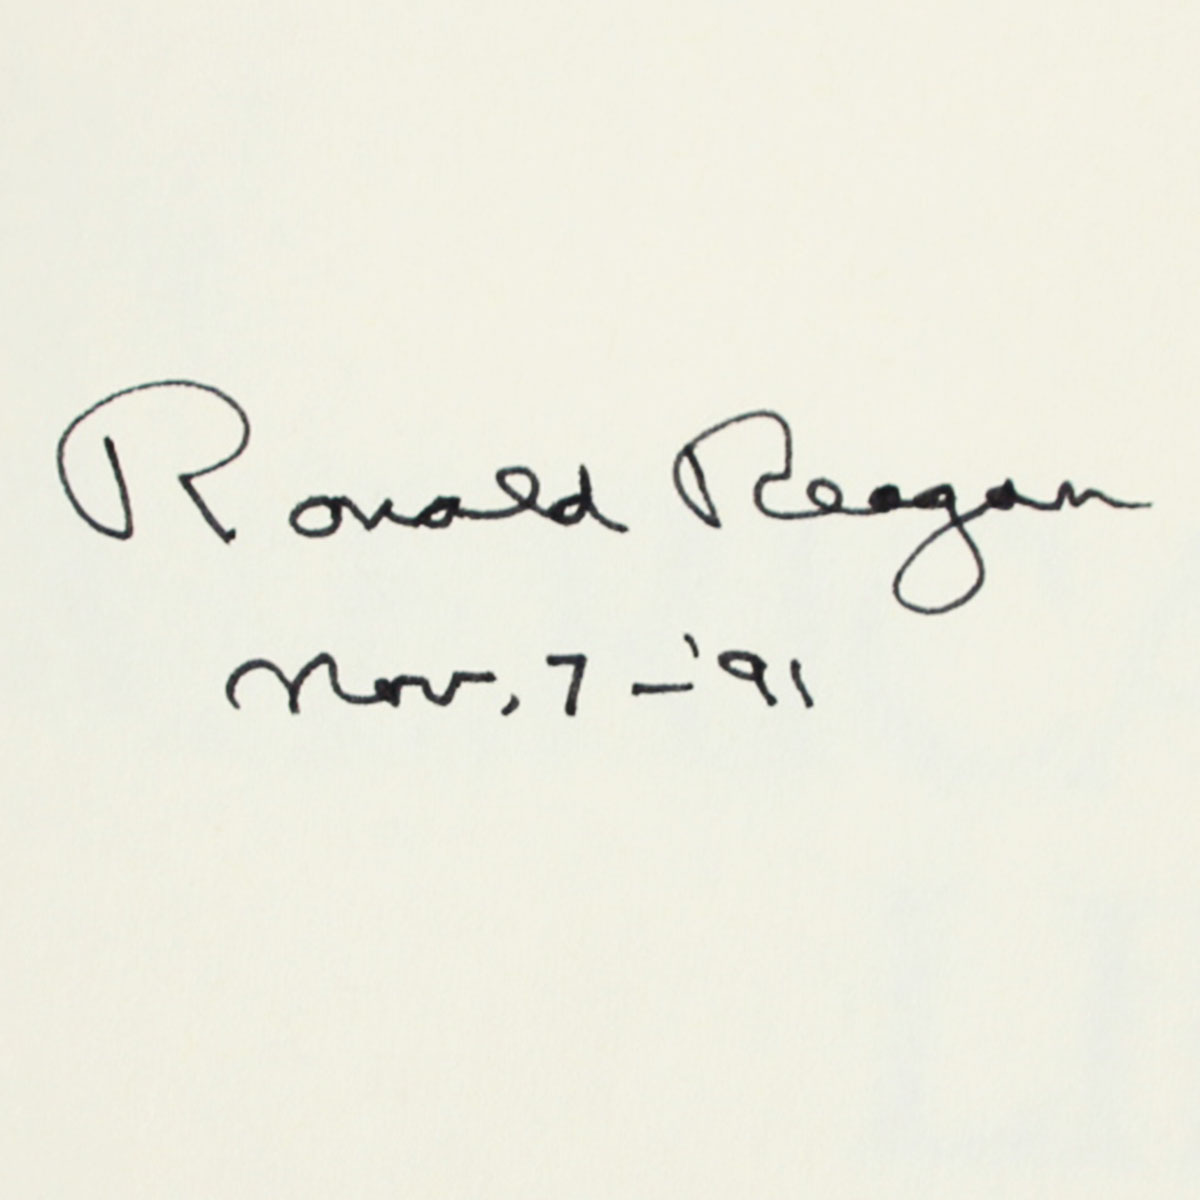 Ronald Reagan
Nov. 7 - '91